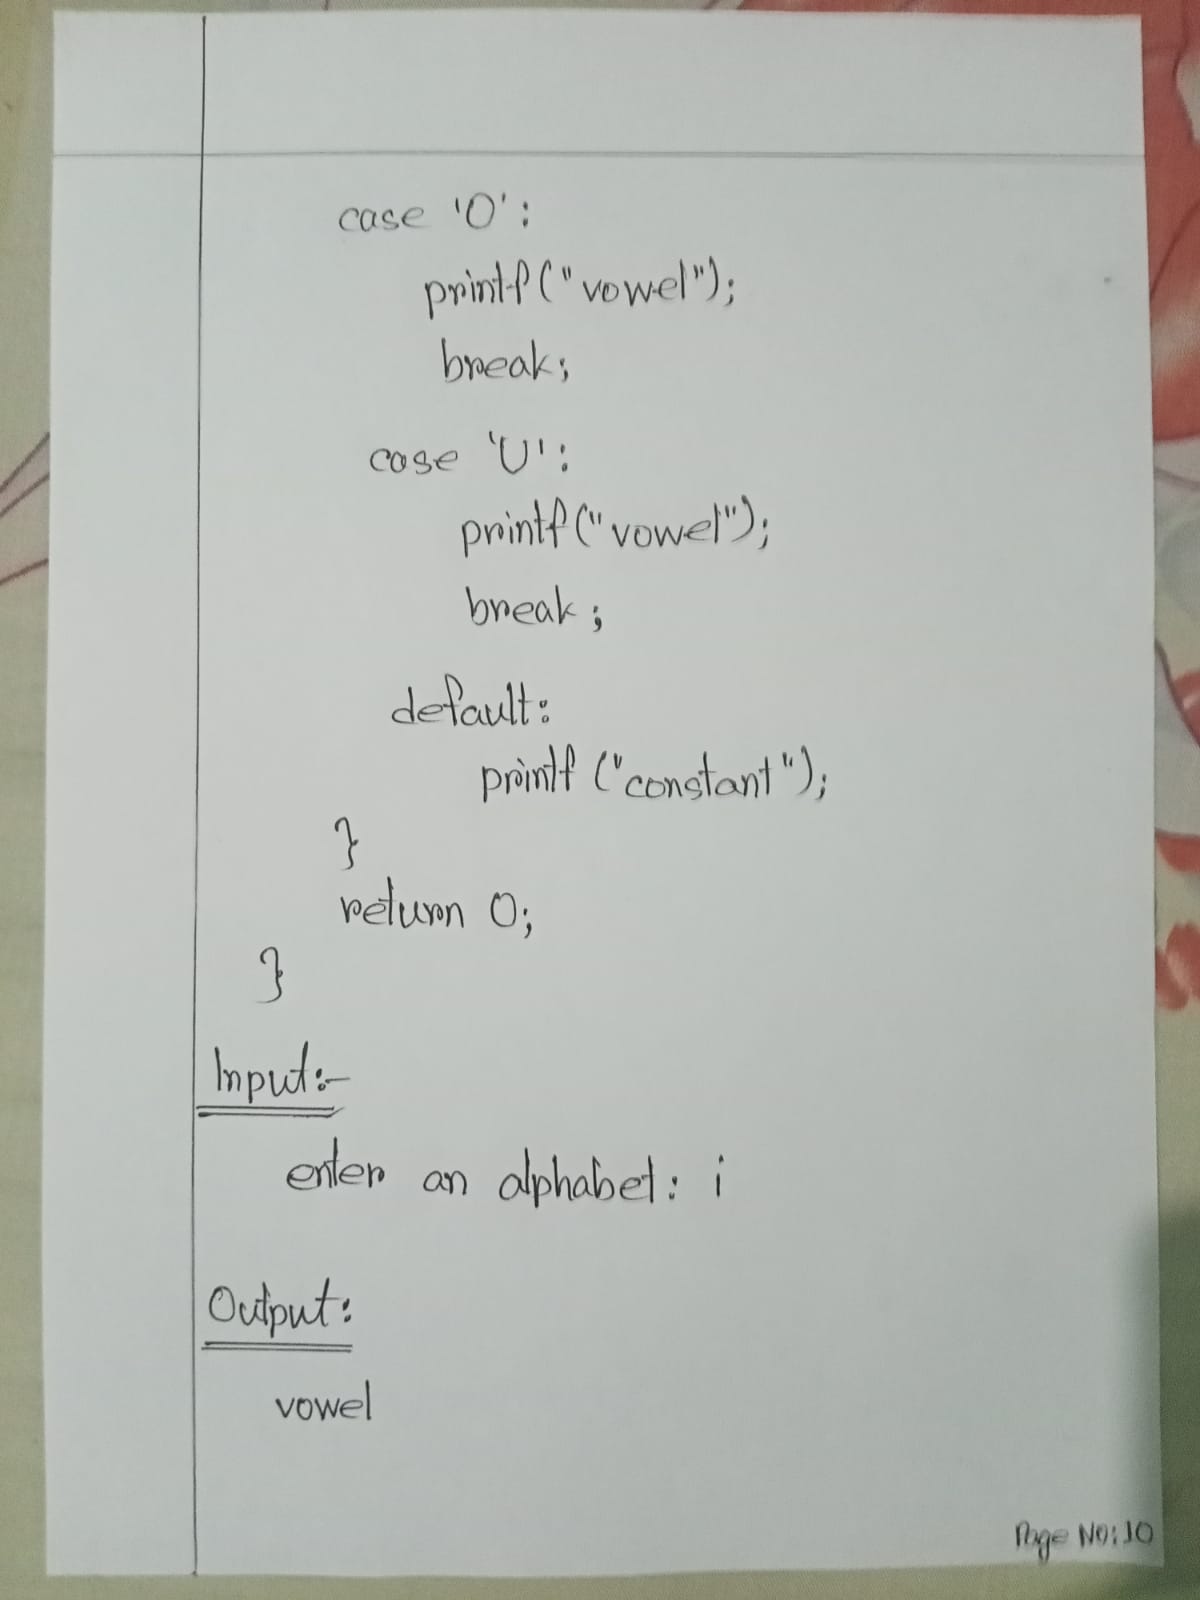 case 'O':
printf("vowel");
break;
case 'U':
printf("vowel");
break;
default:
printf ("constant");
}
return 0;
}
Input:-
enter an alphabet: i
Output:
vowel
Page NO:10